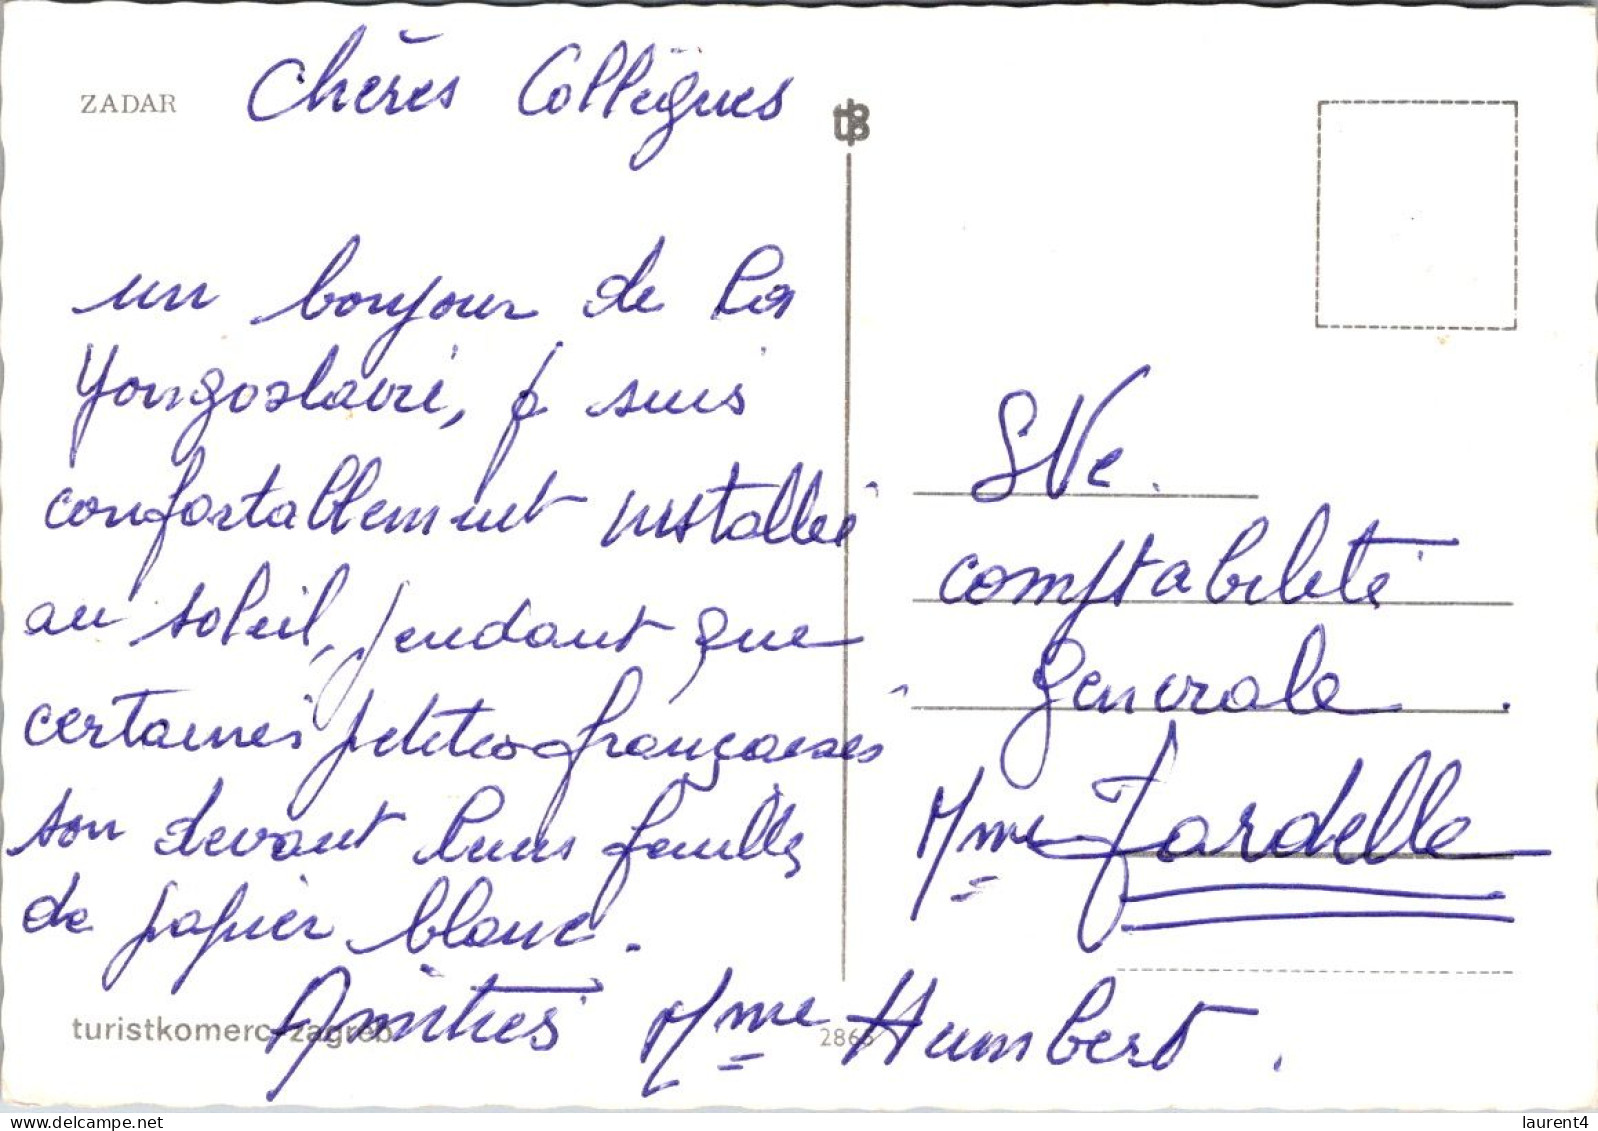 ZADAR
Chères Collègues
un bonjour de la
Yougoslavie, je suis
confortablement installée
au soleil, pendant que
certaines petites françaises
son devant leurs feuilles
de papier blanc.
Amitiés Mme Humbert.
turistkomerc, zagreb
SVe.
comptabilité
générale.
Mme Jardelle
www.delcampe.net
laurent4